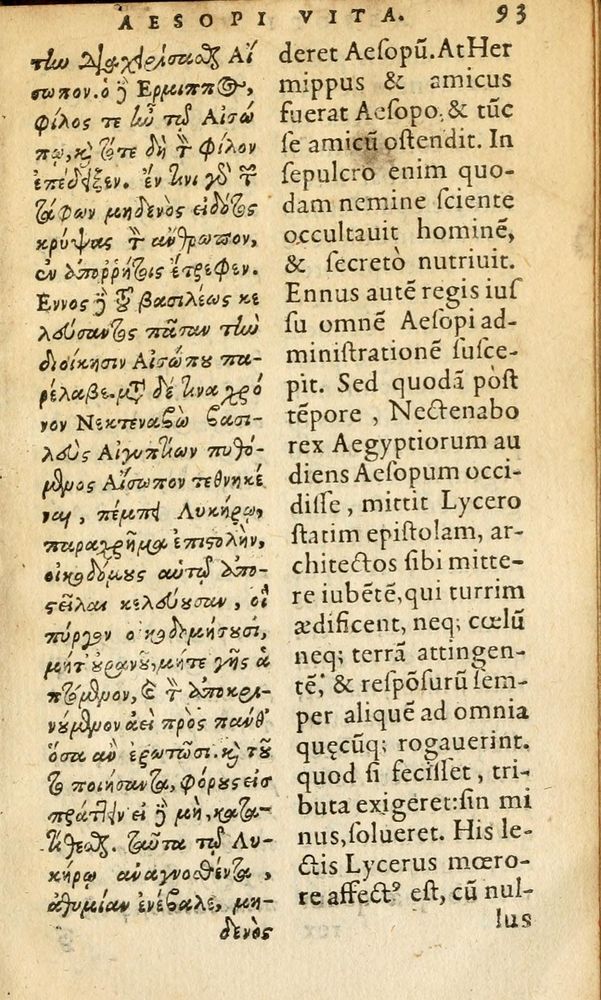 AESOPI VITA. 93
τὴν διαχειρίσασθαι Αἴ
σωπον. ὁ δὲ Ἕρμιππος,
φίλος τε ἦν τῷ Αἰσώ
πῳ, καὶ τότε δὴ τὸν φίλον
ἐπέδειξεν. ἔν τινι γὰρ τῶν
τάφων μηδενὸς εἰδότος
κρύψας τὸν ἄνθρωπον,
ἐν ἀποῤῥήτοις ἔτρεφεν.
Ἔννος δὲ τοῦ βασιλέως κε
λεύσαντος πᾶσαν τὴν
διοίκησιν Αἰσώπου πα-
ρέλαβε. μετὰ δέ τινα χρό
νον Νεκτεναβὼ βασι-
λεὺς Αἰγυπτίων πυθό-
μενος Αἴσωπον τεθνηκέ
ναι, πέμπει Λυκήρῳ,
παραχρῆμα ἐπιστολὴν,
οἰκοδόμους αὐτῷ ἀπο-
στεῖλαι κελεύουσαν, οἳ
πύργον οἰκοδομήσουσι,
μήτ' οὐρανοῦ, μήτε γῆς ἁ
πτόμενον, καὶ τὸν ἀποκρι-
νούμενον ἀεὶ πρὸς πάνθ'
ὅσα ἂν ἐρωτῶσι. καὶ τοῦ
το ποιήσαντα, φόρους εἰσ
πράττειν εἰ δὲ μὴ, κατα-
τίθεσθαι. ταῦτα τῷ Λυ-
κήρῳ ἀναγνωσθέντα,
ἀθυμίαν ἐνέβαλε, μη-
δενὸς
deret Aeſopū. At Her
mippus & amicus
fuerat Aeſopo, & tūc
ſe amicū oſtendit. In
ſepulcro enim quo-
dam nemine ſciente
occultauit hominē,
& ſecretò nutriuit.
Ennus autē regis iuſ
ſu omnē Aeſopi ad-
miniſtrationē ſuſce-
pit. Sed quodā pòſt
tēpore , Nectenabo
rex Aegyptiorum au
diens Aeſopum occi-
diſſe, mittit Lycero
ſtatim epiſtolam, ar-
chitectos ſibi mitte-
re iubētē, qui turrim
ædificent, neq; cœlū
neq; terrā attingen-
tē, & reſpōſurū ſem-
per aliquē ad omnia
quęcūq; rogauerint.
quod ſi feciſſet , tri-
buta exigeret: ſin mi
nus, ſolueret. His le-
ctis Lycerus mœro-
re affectꝰ eſt, cū nul-
lus